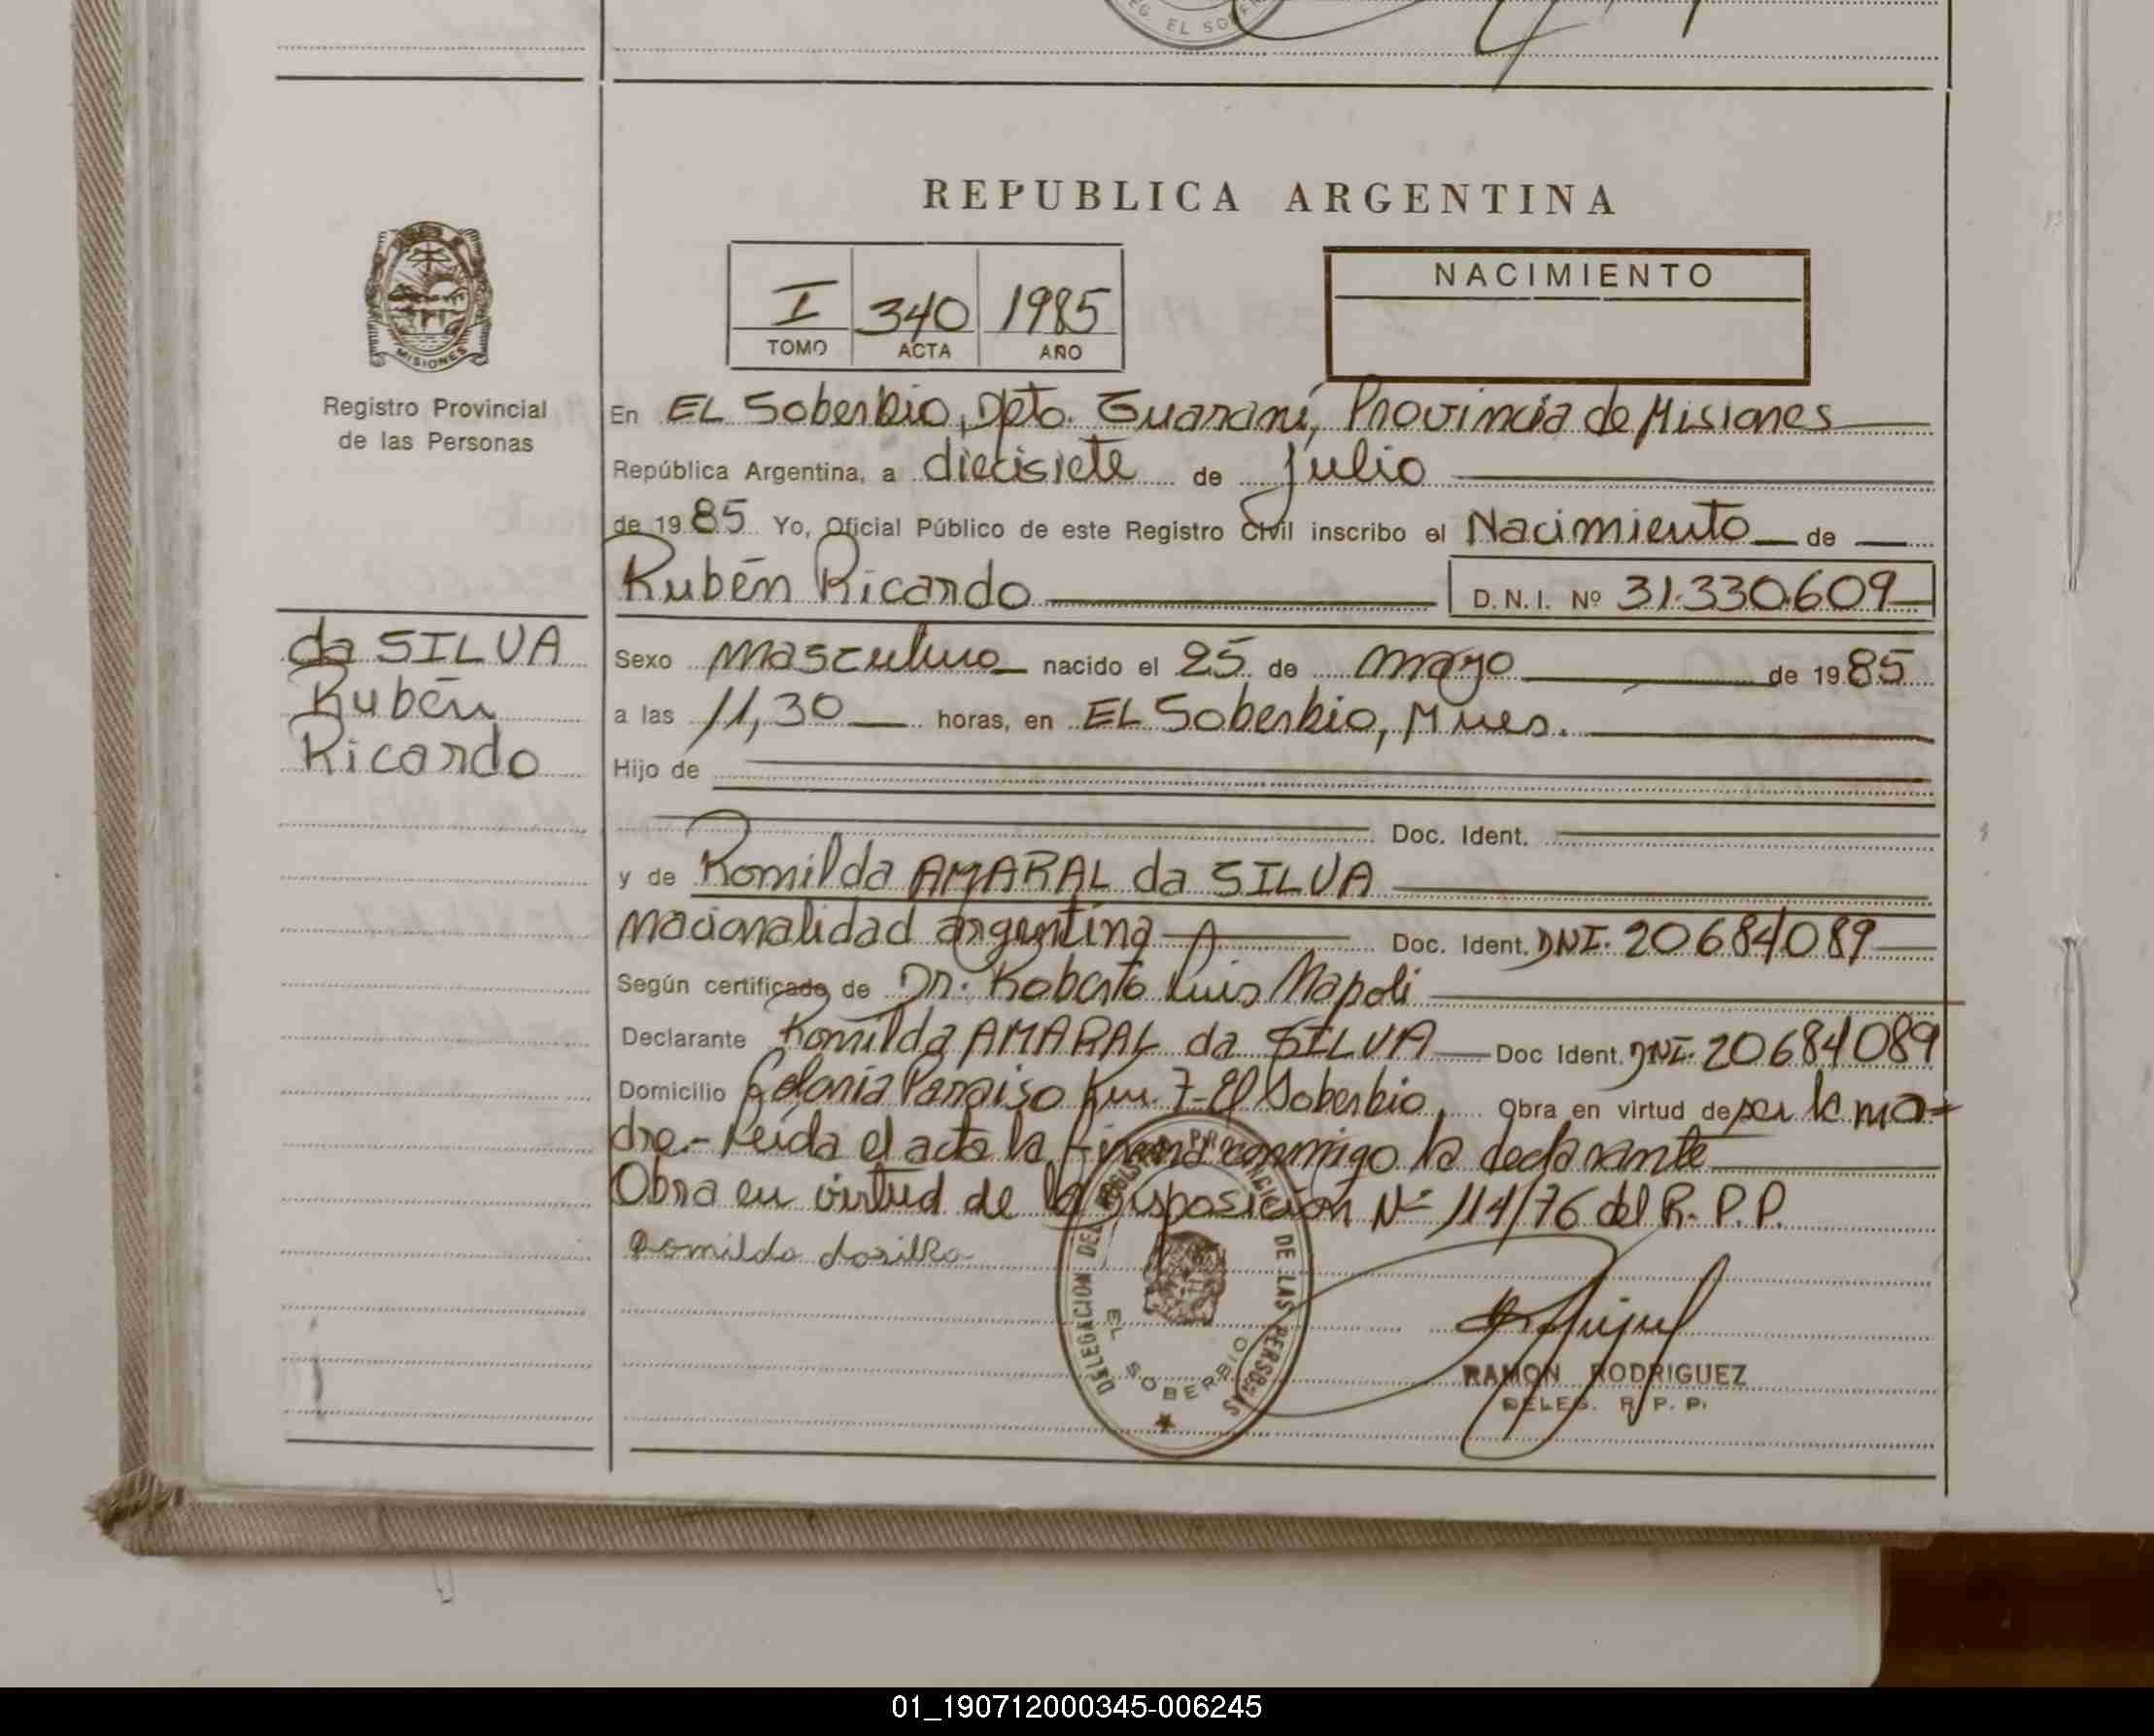 EG. EL SO
REPUBLICA ARGENTINA
I 340 1985
TOMO ACTA AÑO
NACIMIENTO
MISIONES
Registro Provincial
de las Personas
En EL Soberbio, Dpto. Guaraní, Provincia de Misiones
República Argentina, a diecisiete de julio
de 1985 Yo, Oficial Público de este Registro Civil inscribo el Nacimiento de
Rubén Ricardo D.N.I. Nº 31.330.609
da SILVA
Rubén
Ricardo
Sexo masculino nacido el 25 de mayo de 1985
a las 11,30 horas, en EL Soberbio, Mnes.
Hijo de
Doc. Ident.
y de Romilda AMARAL da SILVA
nacionalidad argentina Doc. Ident. DNI. 20684089
Según certificado de Dr. Roberto Luis Napoli
Declarante Romilda AMARAL da SILVA Doc Ident. DNI. 20684089
Domicilio Colonia Paraiso Km. 7-El Soberbio, Obra en virtud de ser la ma=
dre.- Leída el acta la firma conmigo la declarante
Obra en virtud de la Disposición Nº 114/76 del R.P.P.
Romilda dasilva
DELEGACION DEL REGISTRO PROVINCIAL DE LAS PERSONAS
EL SOBERBIO
RAMON RODRIGUEZ
DELEG. R. P. P.
01_190712000345-006245